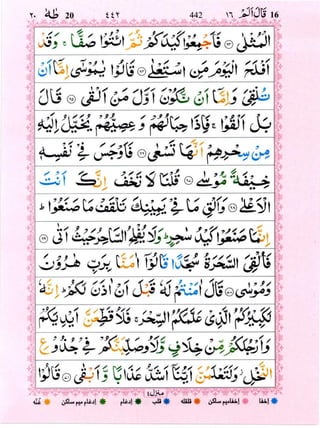 ٢٠ طٰهٰ 20 ٤٤٢ 442 ١٦ قَالَ اَلَمْ 16
الْمُثْلٰى ﴿۶۳﴾ فَاَجْمِعُوْا كَيْدَكُمْ ثُمَّ ائْتُوْا صَفًّا ۚ وَقَدْ
اَفْلَحَ الْيَوْمَ مَنِ اسْتَعْلٰى ﴿۶۴﴾ قَالُوْا يٰمُوْسٰٓى اِمَّاۤ اَنْ
تُلْقِىَ وَاِمَّاۤ اَنْ نَّكُوْنَ اَوَّلَ مَنْ اَلْقٰى ﴿۶۵﴾ قَالَ
بَلْ اَلْقُوْا ۚ فَاِذَا حِبَالُهُمْ وَعِصِيُّهُمْ يُخَيَّلُ اِلَيْهِ
مِنْ سِحْرِهِمْ اَنَّهَا تَسْعٰى ﴿۶۶﴾ فَاَوْجَسَ فِىْ نَفْسِهٖ
خِيْفَةً مُّوْسٰى ﴿۶۷﴾ قُلْنَا لَا تَخَفْ اِنَّكَ اَنْتَ
الْاَعْلٰى ﴿۶۸﴾ وَاَلْقِ مَا فِىْ يَمِيْنِكَ تَلْقَفْ مَا صَنَعُوْا ؕ
اِنَّمَا صَنَعُوْا كَيْدُ سٰحِرٍ ؕ وَلَا يُفْلِحُ السَّاحِرُ حَيْثُ اَتٰى ﴿۶۹﴾
فَاُلْقِىَ السَّحَرَةُ سُجَّدًا قَالُوْۤا اٰمَنَّا بِرَبِّ هٰرُوْنَ
وَمُوْسٰى ﴿۷۰﴾ قَالَ اٰمَنْتُمْ لَهٗ قَبْلَ اَنْ اٰذَنَ لَكُمْ ؕ اِنَّهٗ
لَكَبِيْرُكُمُ الَّذِىْ عَلَّمَكُمُ السِّحْرَ ۚ فَلَاُقَطِّعَنَّ اَيْدِيَكُمْ
وَاَرْجُلَكُمْ مِّنْ خِلَافٍ وَّلَاُوصَلِّبَنَّكُمْ فِىْ جُذُوْعِ
النَّخْلِ ؗ وَلَتَعْلَمُنَّ اَيُّنَاۤ اَشَدُّ عَذَابًا وَّاَبْقٰى ﴿۷۱﴾
منزل٤
اخفا اخفامیم ساکن قلقلہ قلب ادغام ادغام میم ساکن غنّہ